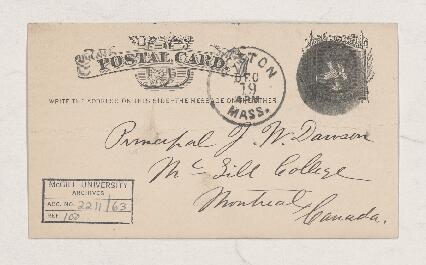 POSTAL CARD.
BOSTON
DEC
19
MASS.
WRITE THE ADDRESS ON THIS SIDE—THE MESSAGE ON THE OTHER
Principal J. W. Dawson
McGill College
Montreal
Canada.
McGILL UNIVERSITY
ARCHIVES
ACC. NO. 2211/63
REF. 100